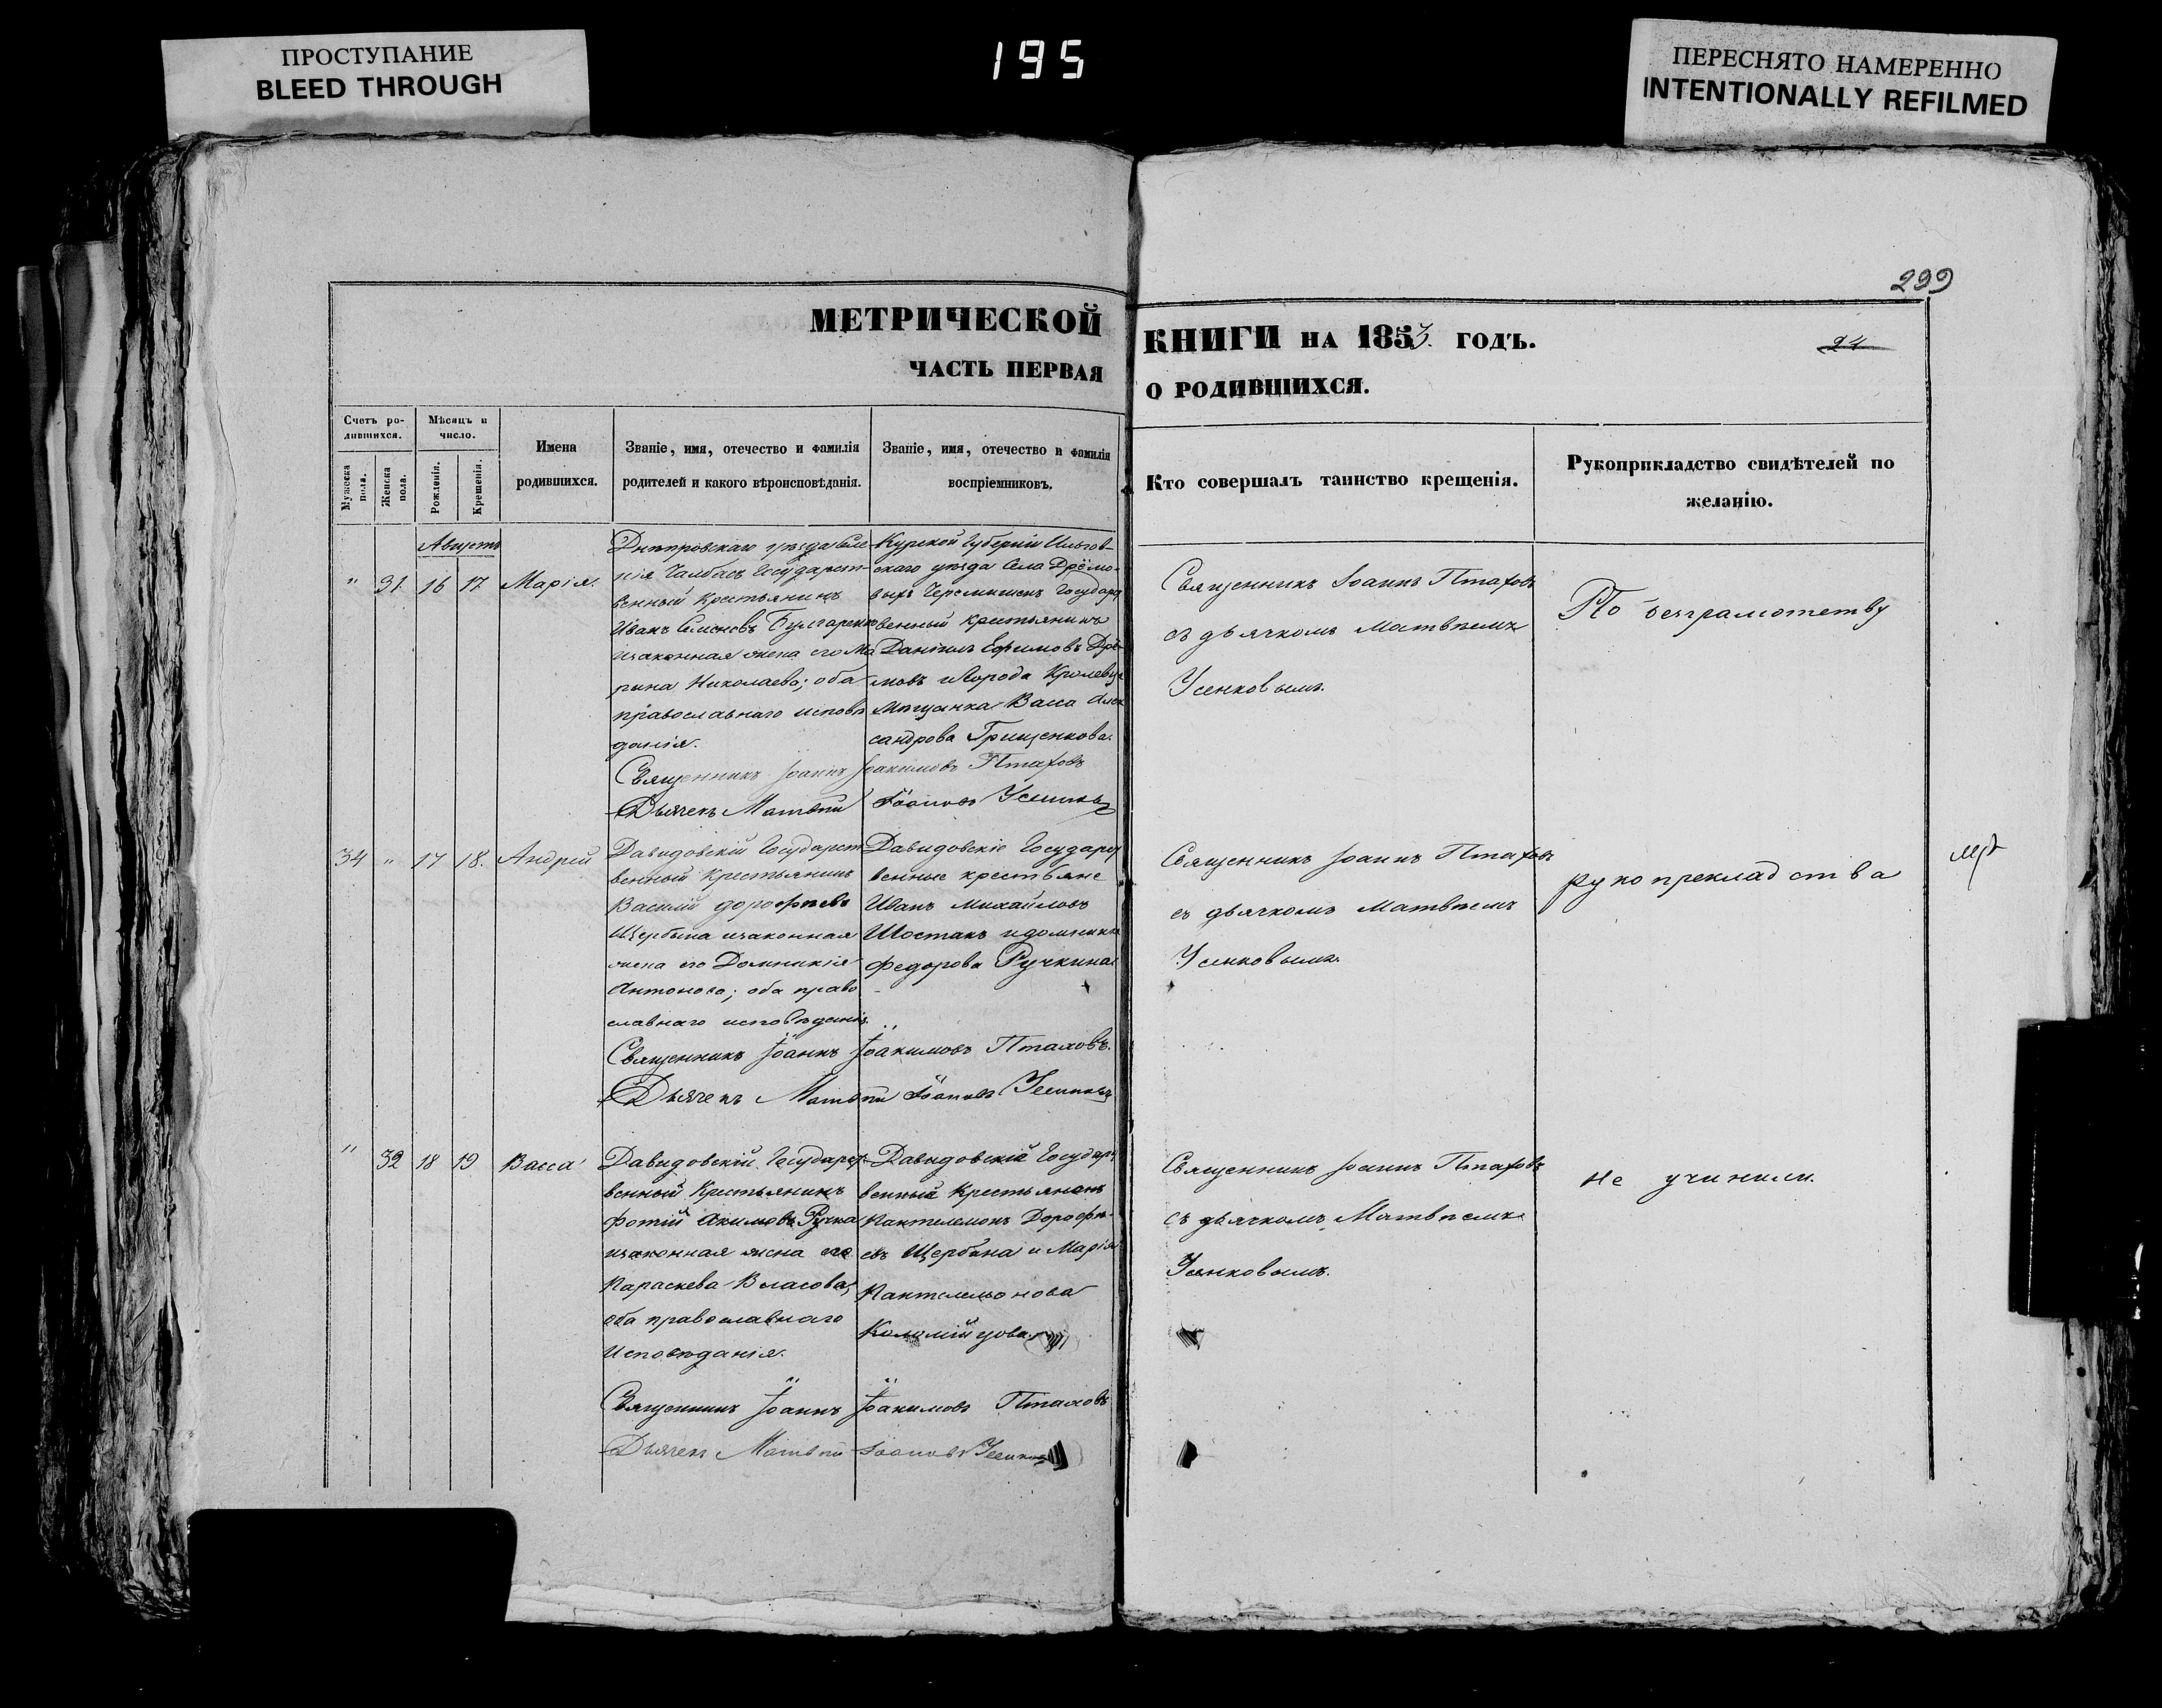 ПРОСТУПАНИЕ
BLEED THROUGH
195
ПЕРЕСНЯТО НАМЕРЕННО
INTENTIONALLY REFILMED
299
МЕТРИЧЕСКОЙ
ЧАСТЬ ПЕРВАЯ
КНИГИ НА 1853. ГОДЪ.
24
О РОДИВШИХСЯ.
Счетъ ро-
дившихся.
Мужеска пола.
Женска пола.
Мѣсяцъ и
число.
Рожденія.
Крещенія.
Имена
родившихся.
Званіе, имя, отечество и фамилія
родителей и какого вѣроисповѣданія.
Званіе, имя, отечество и фамилія
воспріемниковъ.
Кто совершалъ таинство крещенія.
Рукоприкладство свидѣтелей по
желанію.
Августъ
" 31 16 17 Марія.
Днѣпровскаго уѣзда Селе-
нія Чалбасъ Государст-
венный Крестьянинъ
Иванъ Семеновъ Булгаренко
изаконная жена его Ма
рина Николаева; оба
православнаго исповѣ
данія.
Курской Губерніи Ильгов-
скаго уѣзда Села Дрёмо-
выхъ Черемишекъ Государст
венный крестьянинъ
Даніилъ Ефимовъ Дрё-
мовъ иГорода Кролевца
Мѣщанка Васса Алек
сандрова Грищенкова.
Священникъ Іоаннъ Іоакимовъ Птаховъ
Дьячекъ Матвѣй Іоановъ Усенковъ
Священникъ Іоаннъ Птаховъ
съ дьячкомъ Матвѣемъ
Усенковымъ.
По безграмотству
34 " 17 18. Андрей
Давидовскій Государст
венный Крестьянинъ
Василій дорофѣевъ
Щербина изаконная
жена его Домникія
Антонова; оба право
славнаго исповѣданія.
Давидовскіе Государст
венные крестьяне
Иванъ Михайловъ
Шостакъ идомникія
Федорова Ручкина
Священникъ Іоаннъ Іоакимовъ Птаховъ.
Дьячекъ Матвѣй Іоановъ Усенковъ
Священникъ Іоаннъ Птаховъ
съ дьячкомъ Матвѣемъ
Усенковымъ.
рукопрекладства
" 32 18 19 Васса
Давидовскій Государст
венный Крестьянинъ
Фотій Акимовъ Ручка
изаконная жена его
Параскева Власова;
оба православнаго
Исповѣданія.
Давидовскіе Государст
венный Крестьянинъ
Пантелемонъ Дорофѣ-
евъ Щербина и Марія
Пантелемонова
Коломійцова
Священникъ Іоаннъ Іоакимовъ Птаховъ
Дьячекъ Матвѣй Іоановъ Усенковъ
Священникъ Іоаннъ Птаховъ
съ дьячкомъ Матвѣемъ
Усенковымъ.
не учинили.